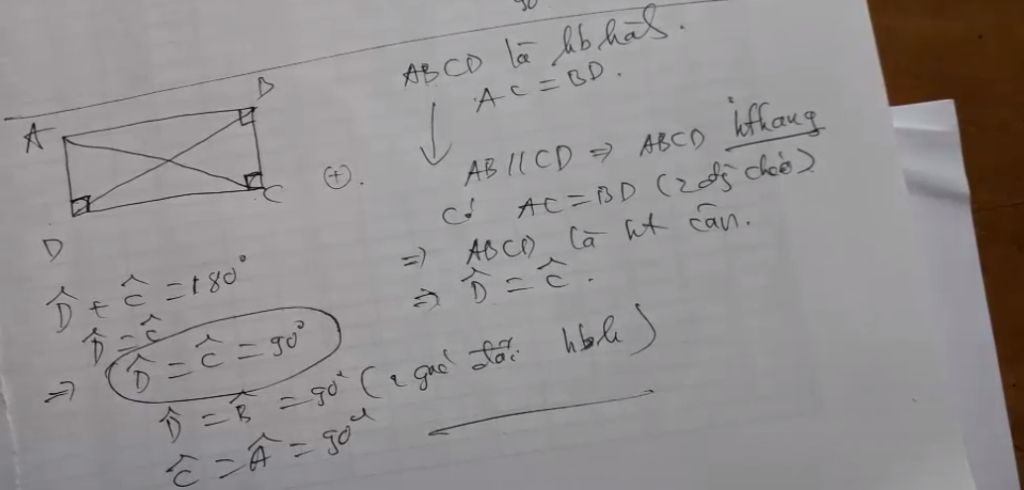 90
ABCD là hb hành.
AC = BD.
A
B
C
D
(+).
AB // CD ⇒ ABCD hthang
có AC = BD (2 đg chéo)
⇒ ABCD là ht cân.
⇒ D̂ = Ĉ.
D̂ + Ĉ = 180°
D̂ = Ĉ
⇒ D̂ = Ĉ = 90°
D̂ = B̂ = 90° (2 góc đối hbh)
Ĉ = Â = 90°